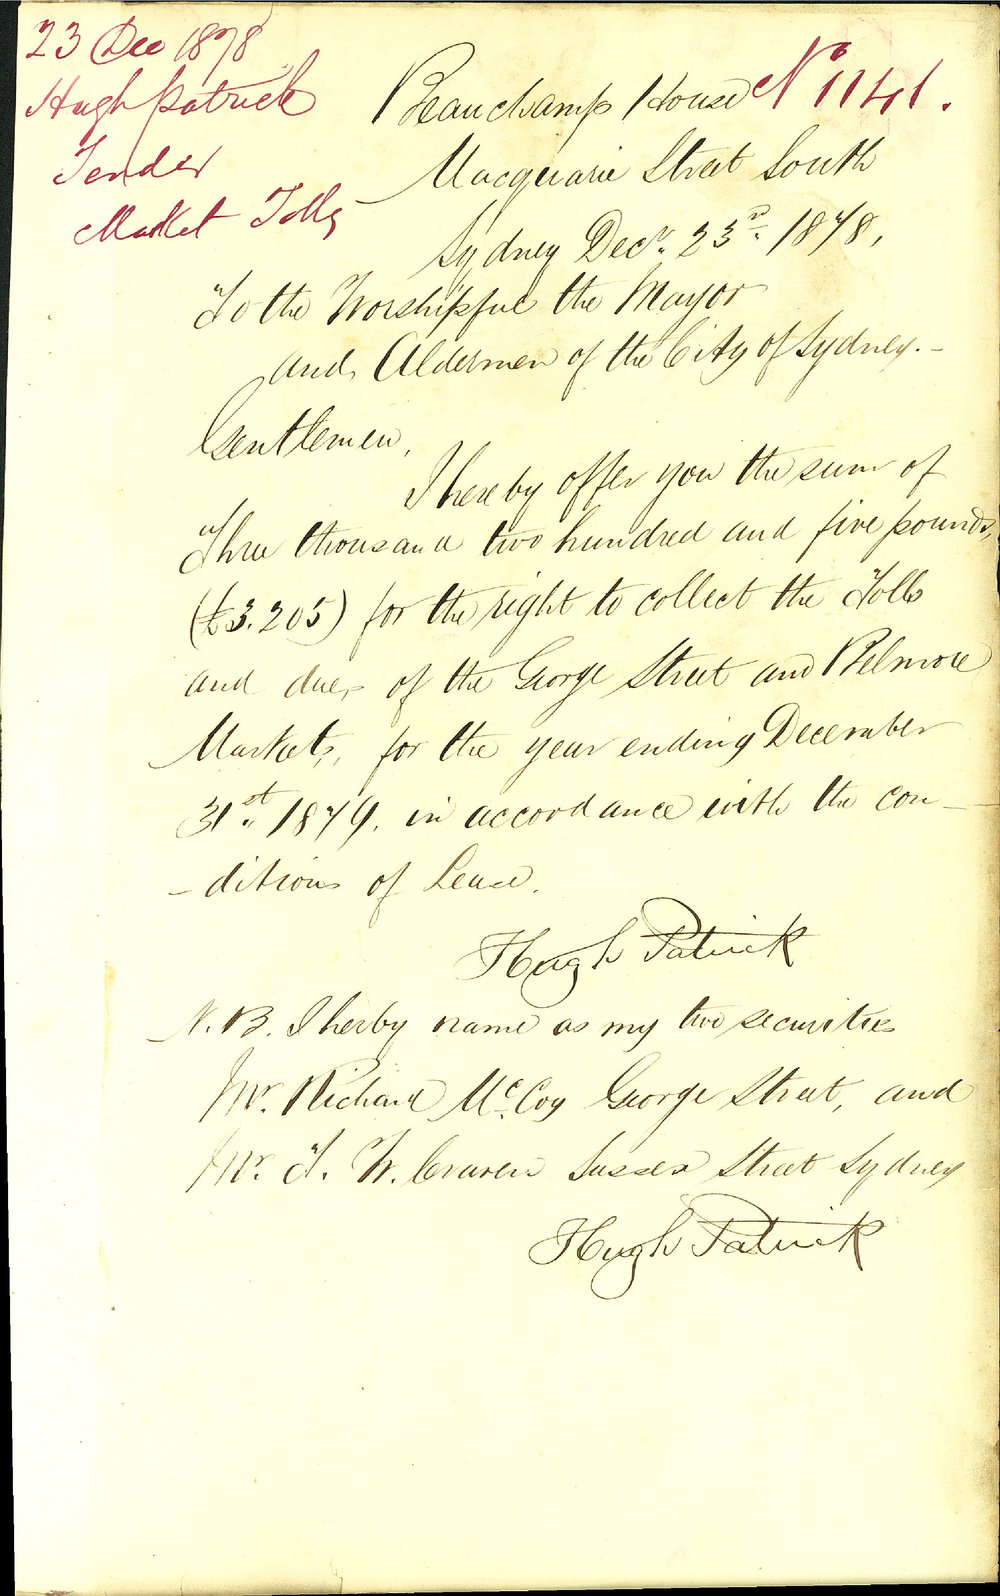 23 Dec 1878
Hugh Patrick
Tender
Market Tolls
No 1141.
Beauchamp House
Macquarie Street South
Sydney Decr. 23rd. 1878,
To the Worshipful the Mayor
and Aldermen of the City of Sydney. -
Gentlemen,
I hereby offer you the sum of
Three thousand two hundred and five pounds,
(£3.205) for the right to collect the Tolls
and dues of the George Street and Belmore
Markets, for the year ending December
31st. 1879. in accordance with the con -
- ditions of Lease.
Hugh Patrick
N. B. I herby name as my two securities
Mr. Richard McCoy George Street, and
Mr. T. W. Craven Sussex Street Sydney
Hugh Patrick